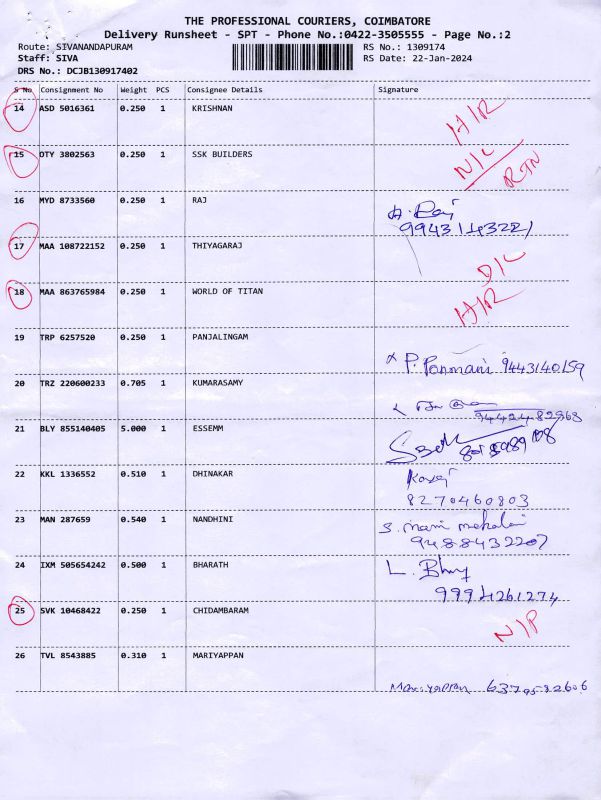 THE PROFESSIONAL COURIERS, COIMBATORE
Delivery Runsheet - SPT - Phone No.:0422-3505555 - Page No.:2
Route: SIVANANDAPURAM RS No.: 1309174
Staff: SIVA RS Date: 22-Jan-2024
DRS No.: DCJB130917402
S No Consignment No Weight PCS Consignee Details Signature
14 ASD 5016361 0.250 1 KRISHNAN H/R
15 DTY 3802563 0.250 1 SSK BUILDERS N/C RTN
16 MYD 8733560 0.250 1 RAJ A. Raj
9943143221
17 MAA 108722152 0.250 1 THIYAGARAJ D/L
18 MAA 863765984 0.250 1 WORLD OF TITAN H/R
19 TRP 6257520 0.250 1 PANJALINGAM
x P. Ponmani 9443140159
20 TRZ 220600233 0.705 1 KUMARASAMY
9442482968
21 BLY 855140405 5.000 1 ESSEMM
22 KKL 1336552 0.510 1 DHINAKAR
8270460803
23 MAN 287659 0.540 1 NANDHINI S. mani mekalai
9488432207
24 IXM 505654242 0.500 1 BHARATH L. Bhuy
9994261274
25 SVK 10468422 0.250 1 CHIDAMBARAM N/P
26 TVL 8543885 0.310 1 MARIYAPPAN
Mariyappan 6379582606